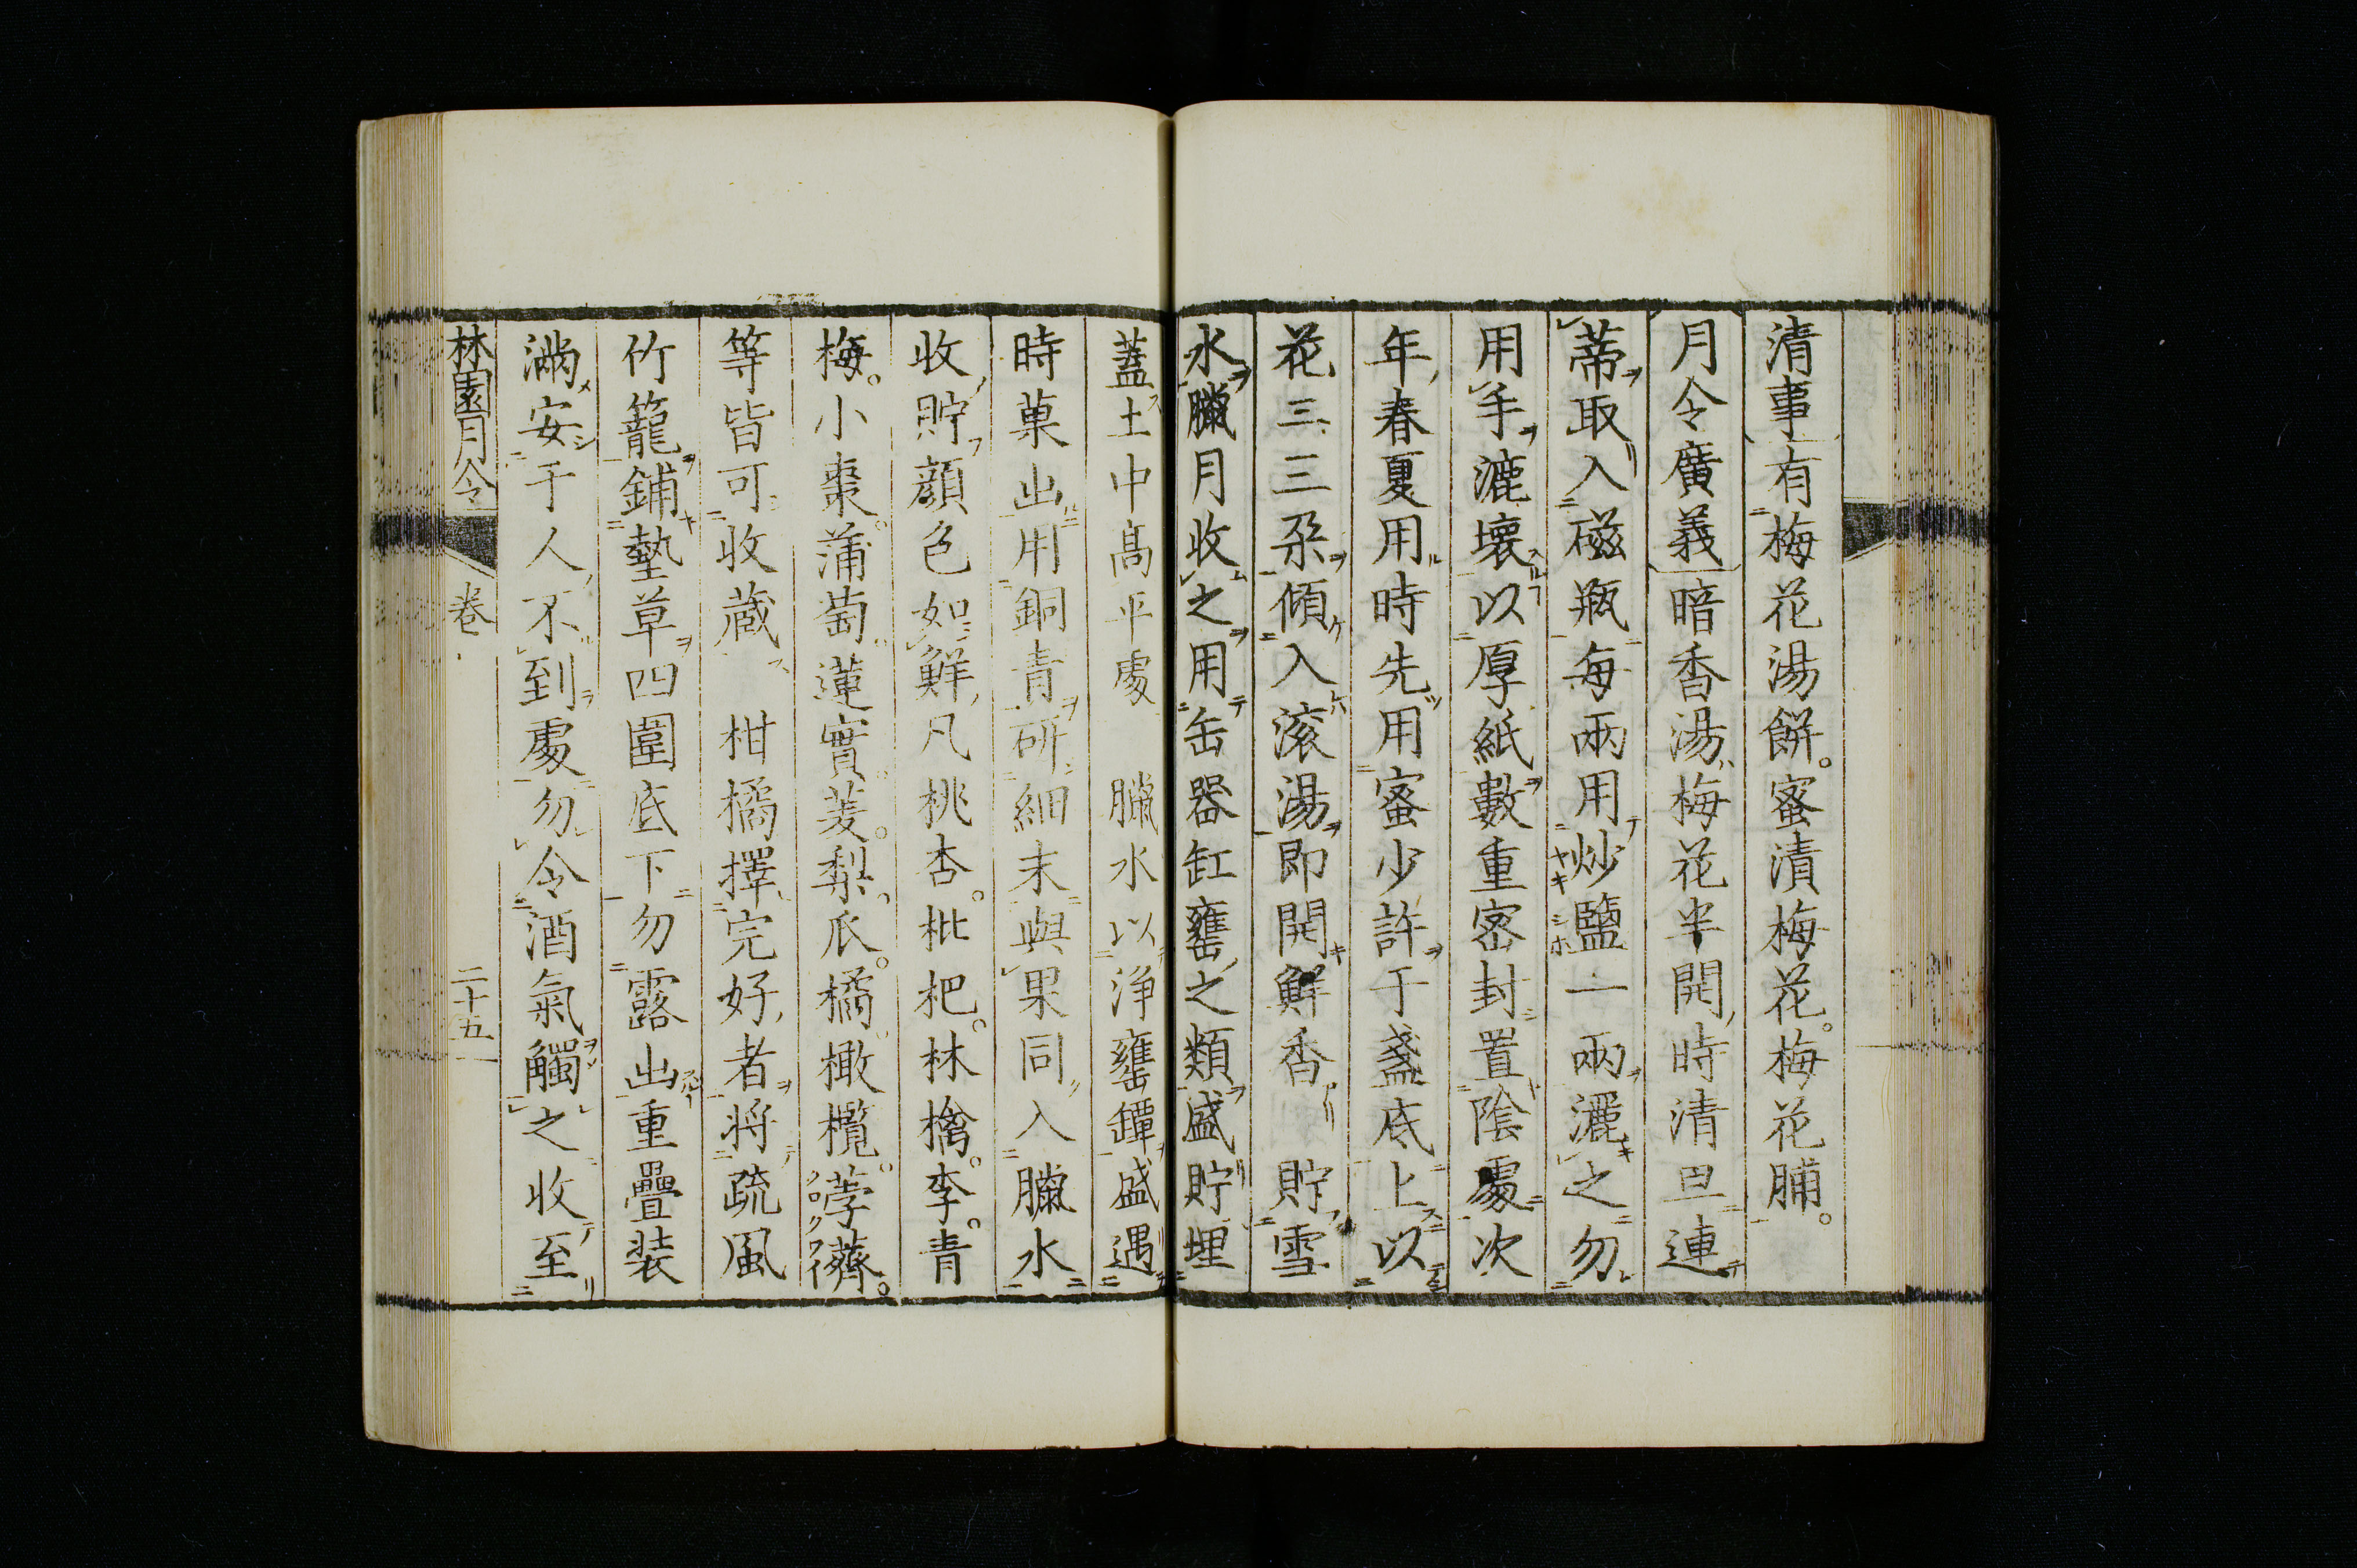 清事有梅花湯餅。蜜漬梅花。梅花脯。
月令廣義暗香湯梅花半開時清旦連
蒂取入磁瓶每兩用炒鹽一兩灑之勿
用手漉壊以厚紙數重密封置陰處次
年春夏用時先用蜜少許于盞底上以
花三三朶傾入滚湯即開鮮香 貯雪
水臘月收之用缶器缸罋之類盛貯埋
蓋土中髙平處 臘水以淨罋罈盛遇
時菓出用銅青研細末與果同入臘水
收貯顔色如鮮凡桃杏。枇杷。林檎。李。青
梅。小棗。蒲萄。蓮實。菱。梨。瓜。橘。橄欖。荸薺。
等皆可收蔵 柑橘擇完好者将疏風
竹籠鋪墊草四圍底下勿露出重疊装
満安于人不到處勿令酒氣觸之收至
林園月令 卷 二十五